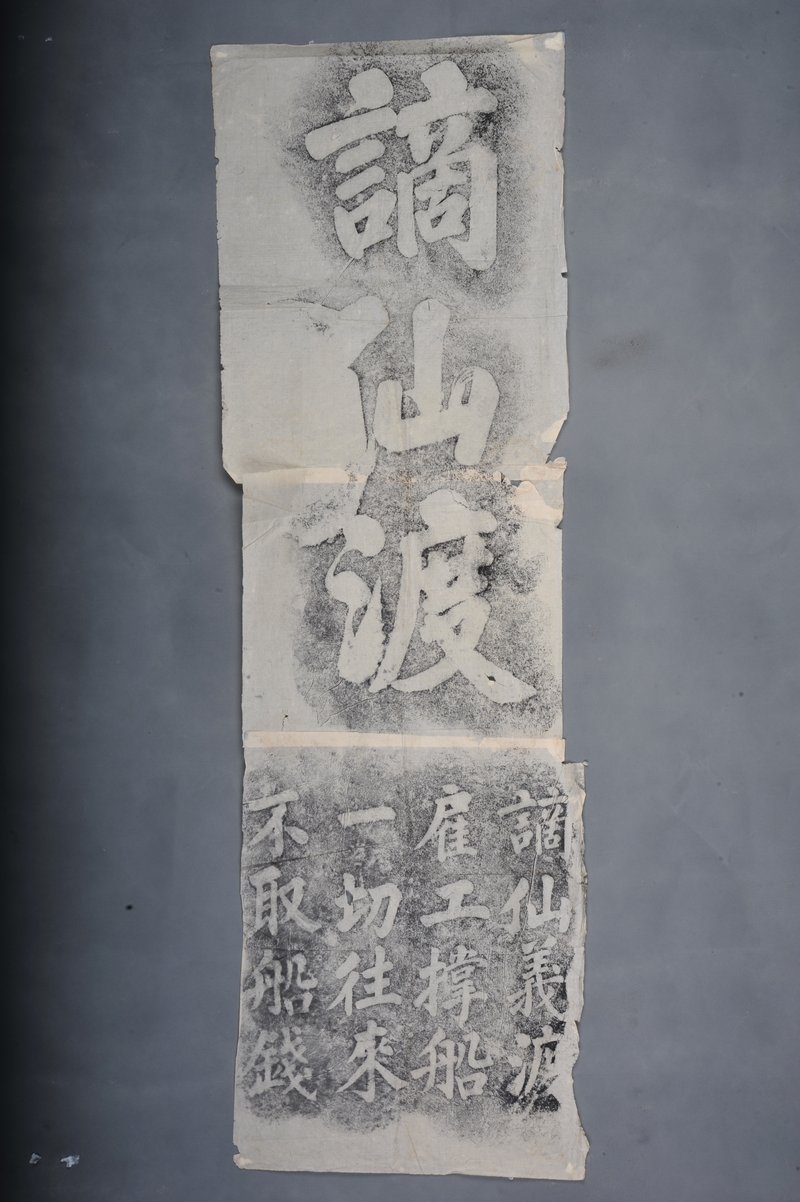 謫仙渡
謫仙義渡
雇工撑船
一切往來
不取船錢